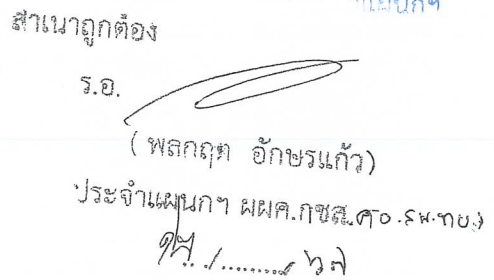 สำเนาถูกต้อง
ร.อ.
(พลกฤต อักษรแก้ว)
ประจำแผนกฯ ผผค.กชส.